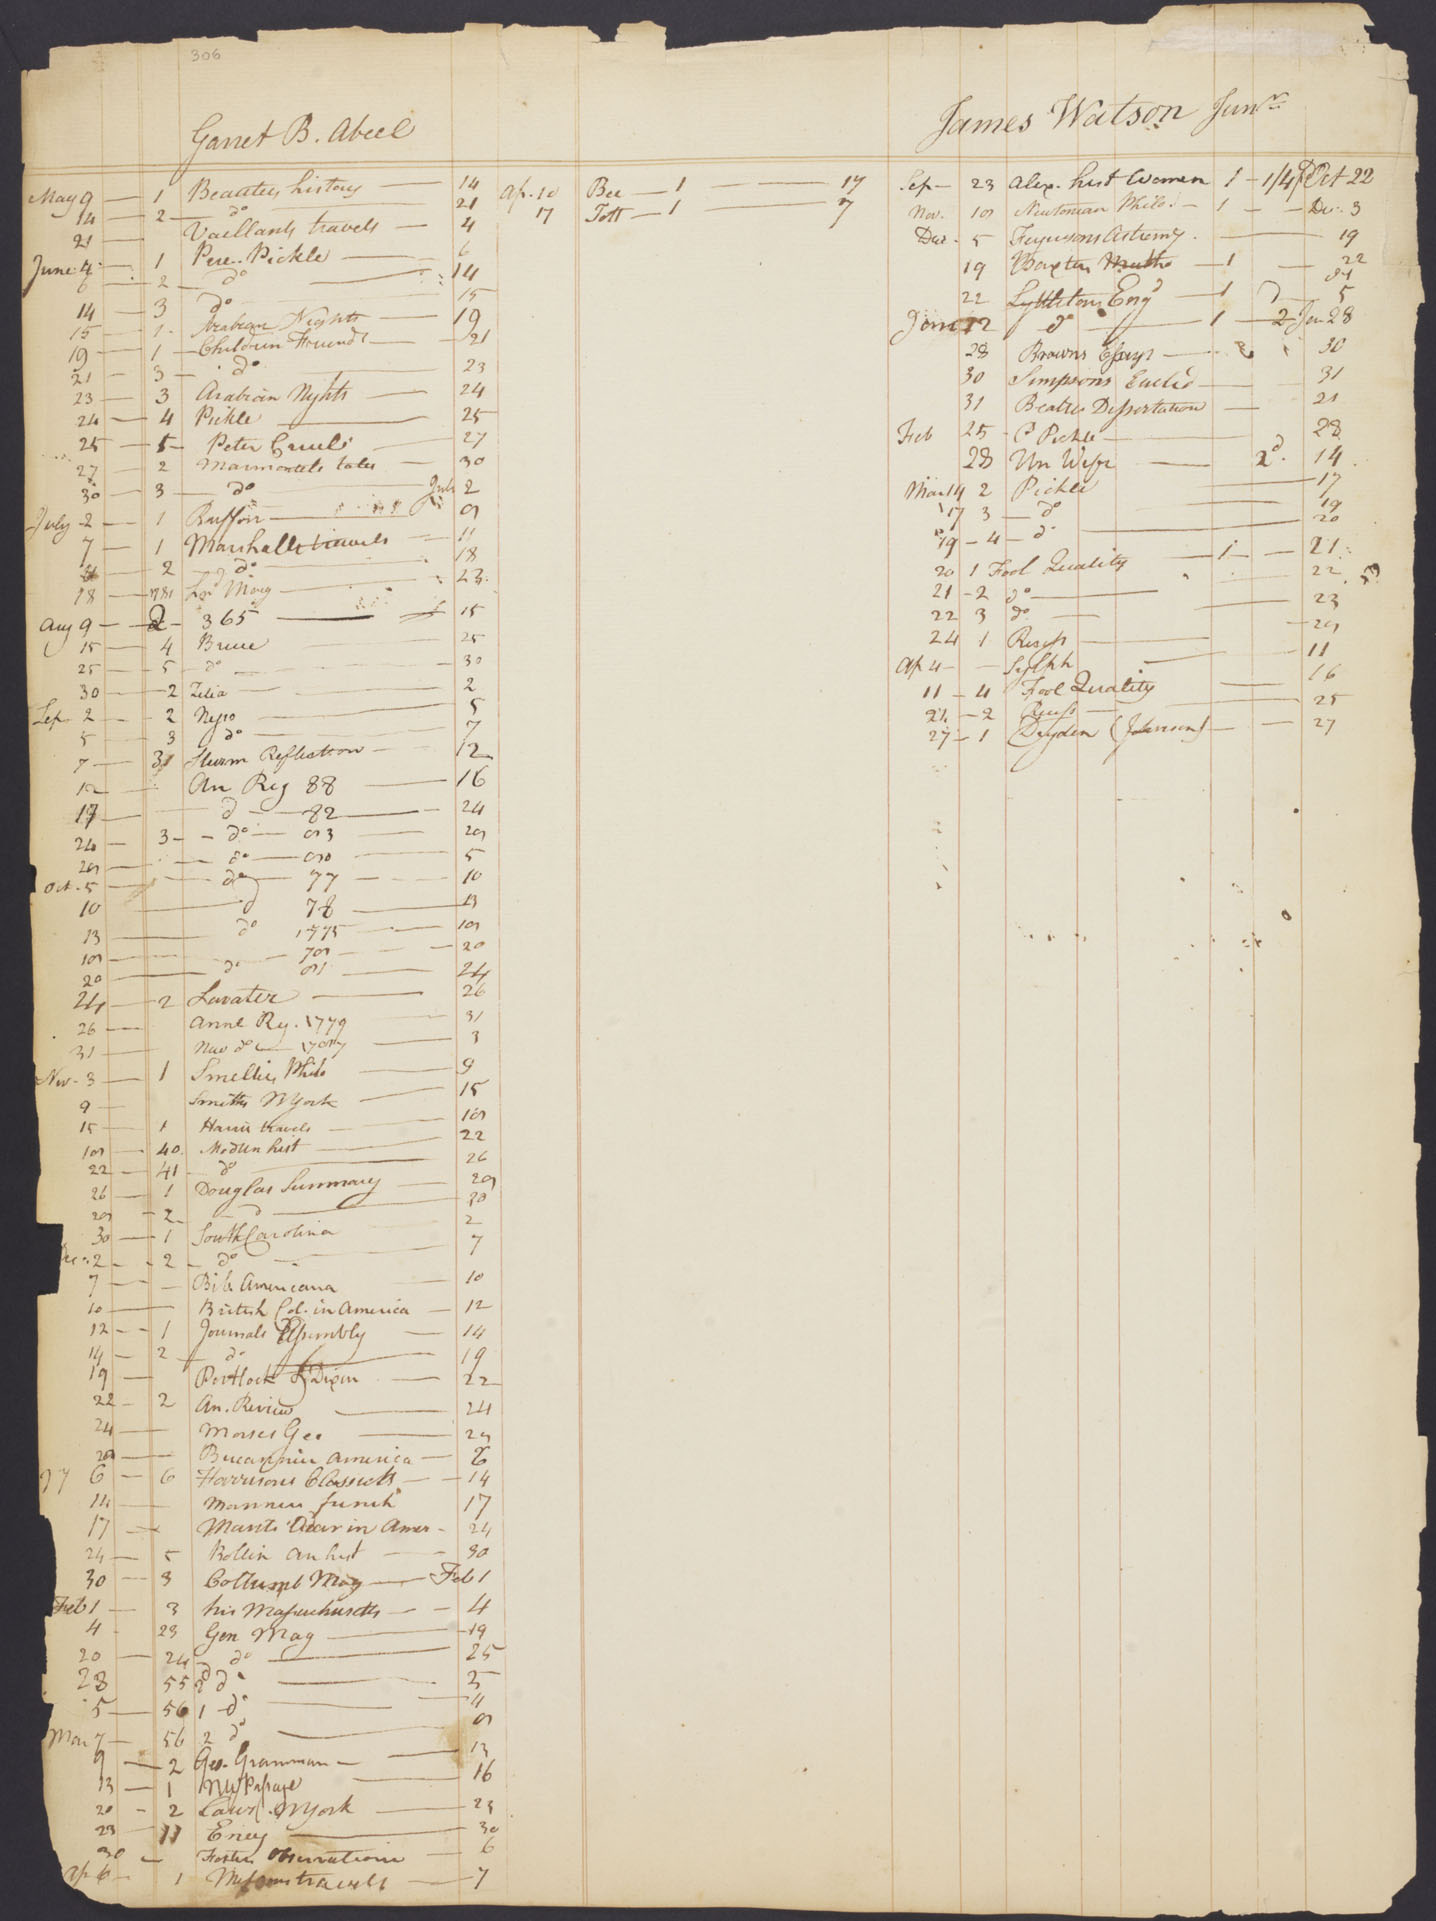 306
Garret B. Abeel
May 9 — 1 Beauties history — 14
14 — 2 — do — 21
21 — Vaillants travels — 4
June 4 — 1 Pere. Pickle — 6
6 — 2 — do — 14
14 — 3 do — 15
15 — 1 Arabian Nights — 19
19 — 1 — Children Friend — 21
21 — 3 — do — 23
23 — 3 Arabian Nights — 24
24 — 4 Pickle — 25
25 — 5 — Peter — 27
27 — 2 Marmontels tales — 30
30 — 3 — do — July 2
July 2 — 1 Buffon — 9
7 — 1 Marshalls travels — 11
2 — do — 18
18 — 781 Ln Mag — 23
Aug 9 — 2 — 365 — 15
15 — 4 Bruce 25
25 — 5 — do — 30
30 — 2 Zelia — 2
Sep 2 — 2 Negro — 5
5 — 3 do — 7
7 — 31 Sturm Reflection — 12
12 — An Reg 88 — 16
17 — d — 82 — 24
24 — 3 — do — 93 — 29
29 — do — 90 — 5
Oct. 5 — do — 77 — 10
10 — d 78 — 13
13 — do 1775 — 19
19 — 79 — 20
20 — do 91 — 24
24 — 2 Lavater — 26
26 — Annl Reg. 1779 — 31
31 — New do — 1797 — 3
Nov. 3 — 1 Smellies Philo — 9
9 — Smiths NYork — 15
15 — 1 Harris travels — 19
19 — 40 Modern hist — 22
22 — 41 — do — 26
26 — 1 Douglas Summary — 29
29 — 2 — d — 30
30 — 1 South Carolina — 2
2 — 2 — do — 7
7 — Bib. Americana — 10
10 — British Col. in America — 12
12 — 1 Journals Assembly — 14
14 — 2 — do — 19
19 — Portlock & Dixon — 22
22 — 2 An. Review — 24
24 — Morses Geo — 29
29 — America — 6
97 6 — 6 Harrisons Classicks — 14
14 — 17
17 — Mants War in Amer — 24
24 — 5 Rollin an hist — 30
30 — 3 Columb Mag — Feb 1
Feb 1 — 3 his Massachusetts — 4
4 — 23 Gen Mag — 19
20 — 24 do — 25
28 55 2 do — 5
5 — 56 1 do — 4
Mar 7 — 56 2 do — 9
9 — 2 Geo. Gramman — 13
13 — 1 NW Passage — 16
20 — 2 Laws NYork — 23
23 — 11 Ency — 30
30 — Fosters Observations — 6
Ap 6 — 1 travels — 7
Ap. 10 Bee — 1 — 17
17 Tott — 1 — 7
James Watson Junr.
Sep — 23 Alex. hist Women 1 — 1/4 Oct 22
Nov. 19 Newtonian Philo. — 1 — Dec. 3
Dec. 5 Fergusons Astromy. — 19
19 Baxters — 1 — 22
22 Lyttletons Engd — 1 5
Jan 12 do — 1 — 2 Jan 28
28 Browns Essays — 30
30 Simpsons Euclid — 31
31 Beatties Dissertation — 21
Feb 25 P Pickle — 28
28 Un Wife — 2d. 14
Mar 14 2 Pickle — 17
17 3 — do — 19
19 — 4 — do — 20
20 1 Fool Quality — 1 — 21
21 — 2 do — 22
22 3 do — 23
24 1 Recess — 29
Ap 4 — Sylph — 11
11 — 4 Fool Quality — 16
21 — 2 Recess — 25
27 — 1 Dryden (Johnson) — 27